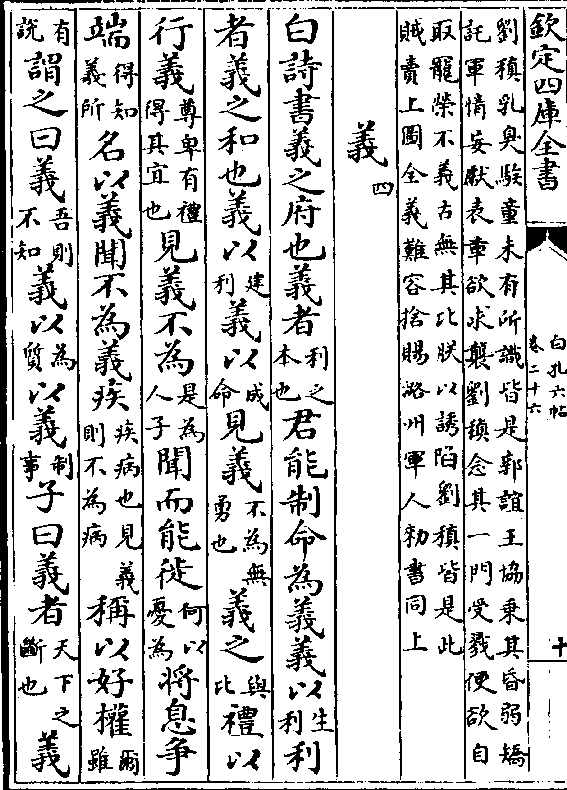 欽定四庫全書
白孔六帖
卷二十六
十
劉稹乳臭騃童未有所識皆是郭誼王協乗其昏弱矯
託軍情妄獻表章欲求襲劉稹念其一門受戮便欲自
取寵榮不義古無其比朕以誘陷劉稹皆是此
賊賣上圖全義難容捨賜潞州軍人勑書同上
義四
白詩書義之府也義者利之本也君能制命為義義以生利利
者義之和也義以建利義以成命見義不為無勇也義之與比禮以
行義尊卑有禮得其宜也見義不為是為人子聞而能徙何以憂為將息爭
端得知義所名以義聞不為義疾疾病也見義則不為病稱以好權爾雖
有說謂之曰義吾則不知義以為質以義制事子曰義者天下之斷也義